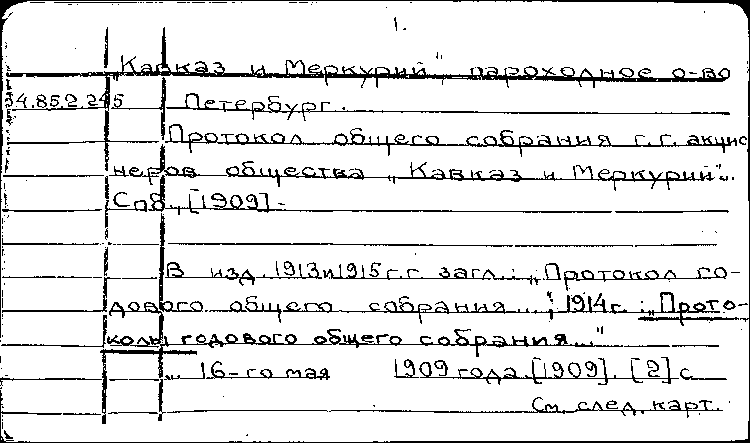 1.
„Кавказ и Меркурий", пароходное о-во
34.85.2.245 Петербург.
Протокол общего собрания г.г. акцио-
неров общества „Кавказ и Меркурий".
Спб., [1909]-
В изд. 1913 и 1915 г.г. загл.: „Протокол го-
дового общего собрания...; 1914 г. : „Прото-
колы годового общего собрания..."
... 16-го мая 1909 года. [1909]. [2] с.
См. след. карт.